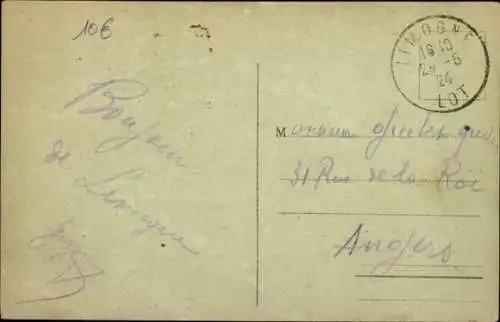 10€
LIMOGNE
19 10
29 -5
24
LOT
Bonjour
de Limogne
Monsieur
31 Rue de la Roi
Angers